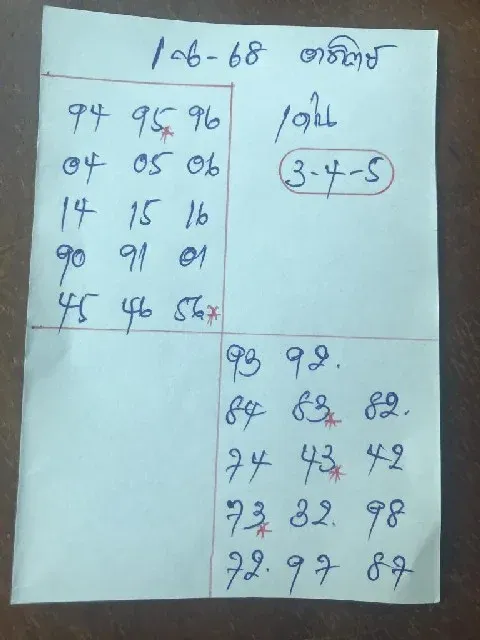 1-6-68 อาทิตย์
94 95* 96
เด่น
04 05 06
3-4-5
14 15 16
90 91 01
45 46 56*
93 92.
84 83* 82.
74 43* 42
73* 32. 98
72. 97 87